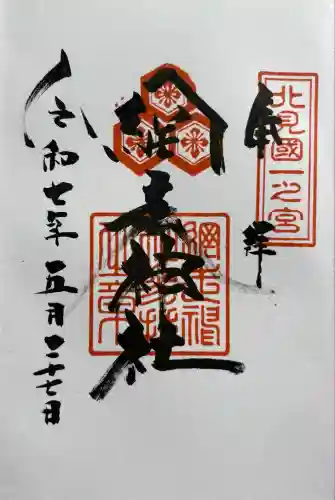 北見國一之宮
奉拝
網走神社
令和七年五月二十七日